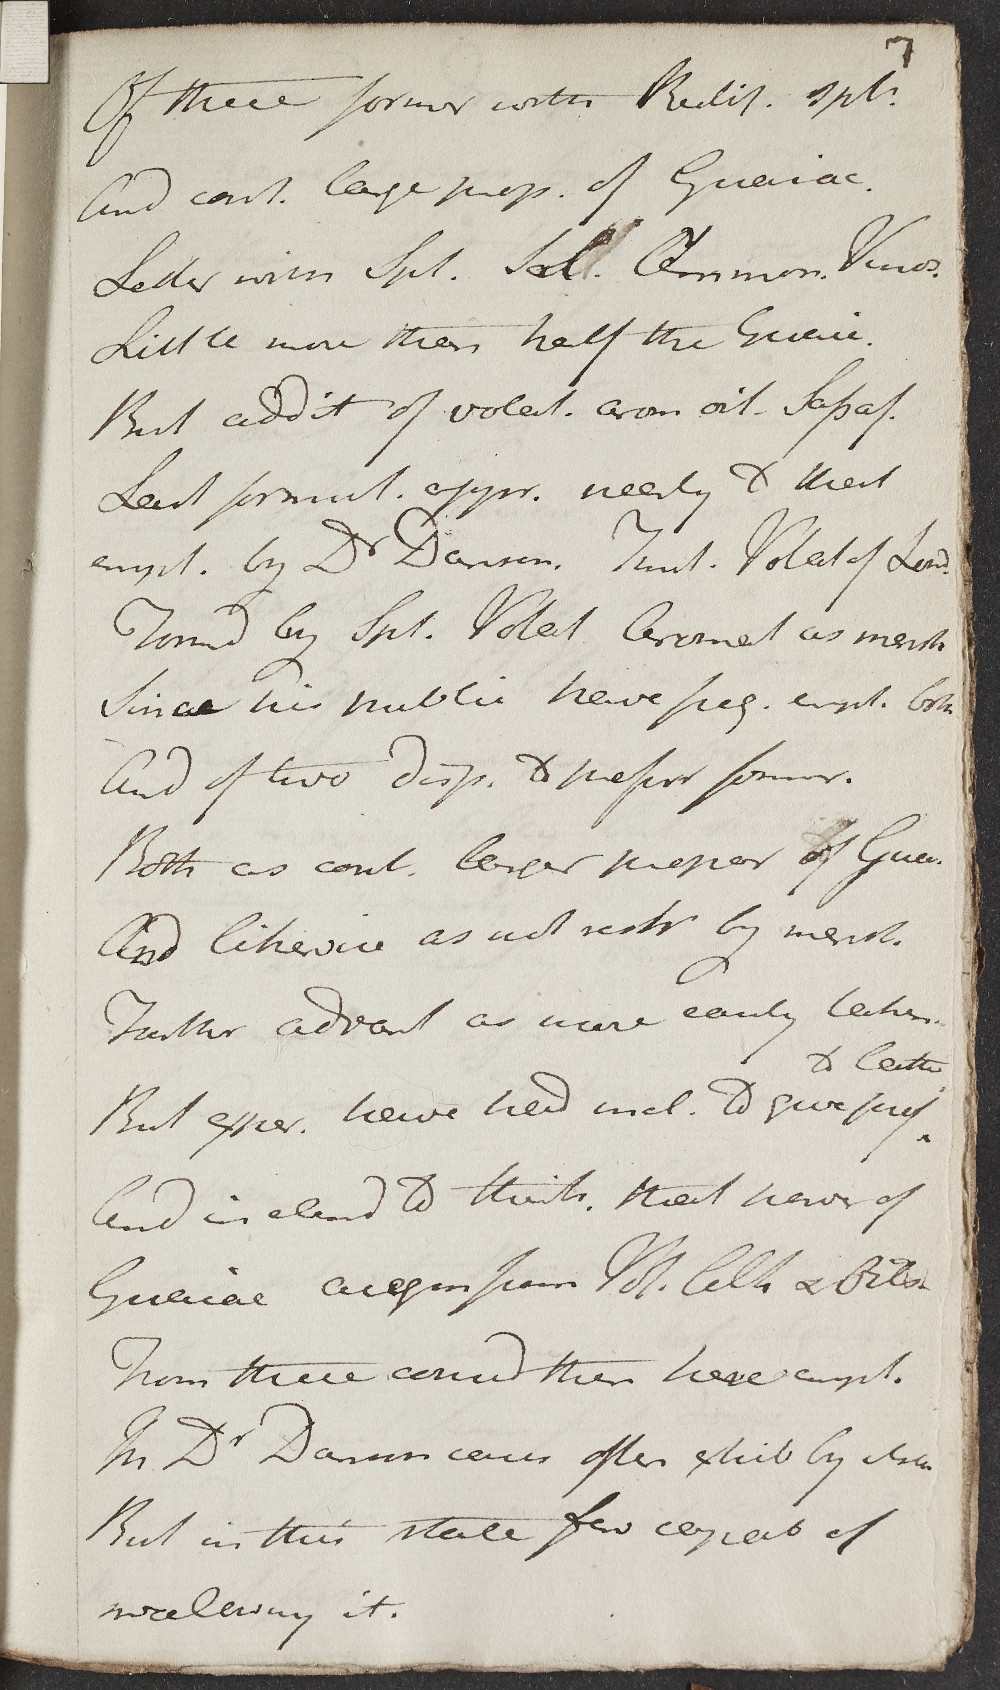 7
Of these former with Rectif. spt.
And cont. large prop. of Guaiac.
Latter with Spt. Sal. Ammon. Vinos.
Little more than half the Guaic.
But addit of volat. arom oil Sassaf.
Last formul. appr. nearly to that
empl. by Dr Dawson. Tinct. Volat of Lond.
Form'd by Spt. Volat Aromat as menst
Since his public have freq. empl. both
And of two disp. to prefer former.
Both as cont. larger propor of Guai.
And likewise as not restr by menst.
Farther advant as more easily taken
to latter
But exper. have had incl. to give pref.
And inclend to think. that power of
Guaiac from Vol. Alk & Oils
From these conceid then have empl.
In Dr Dawson cases often exhib by
But in this state few capab of
swalowing it.